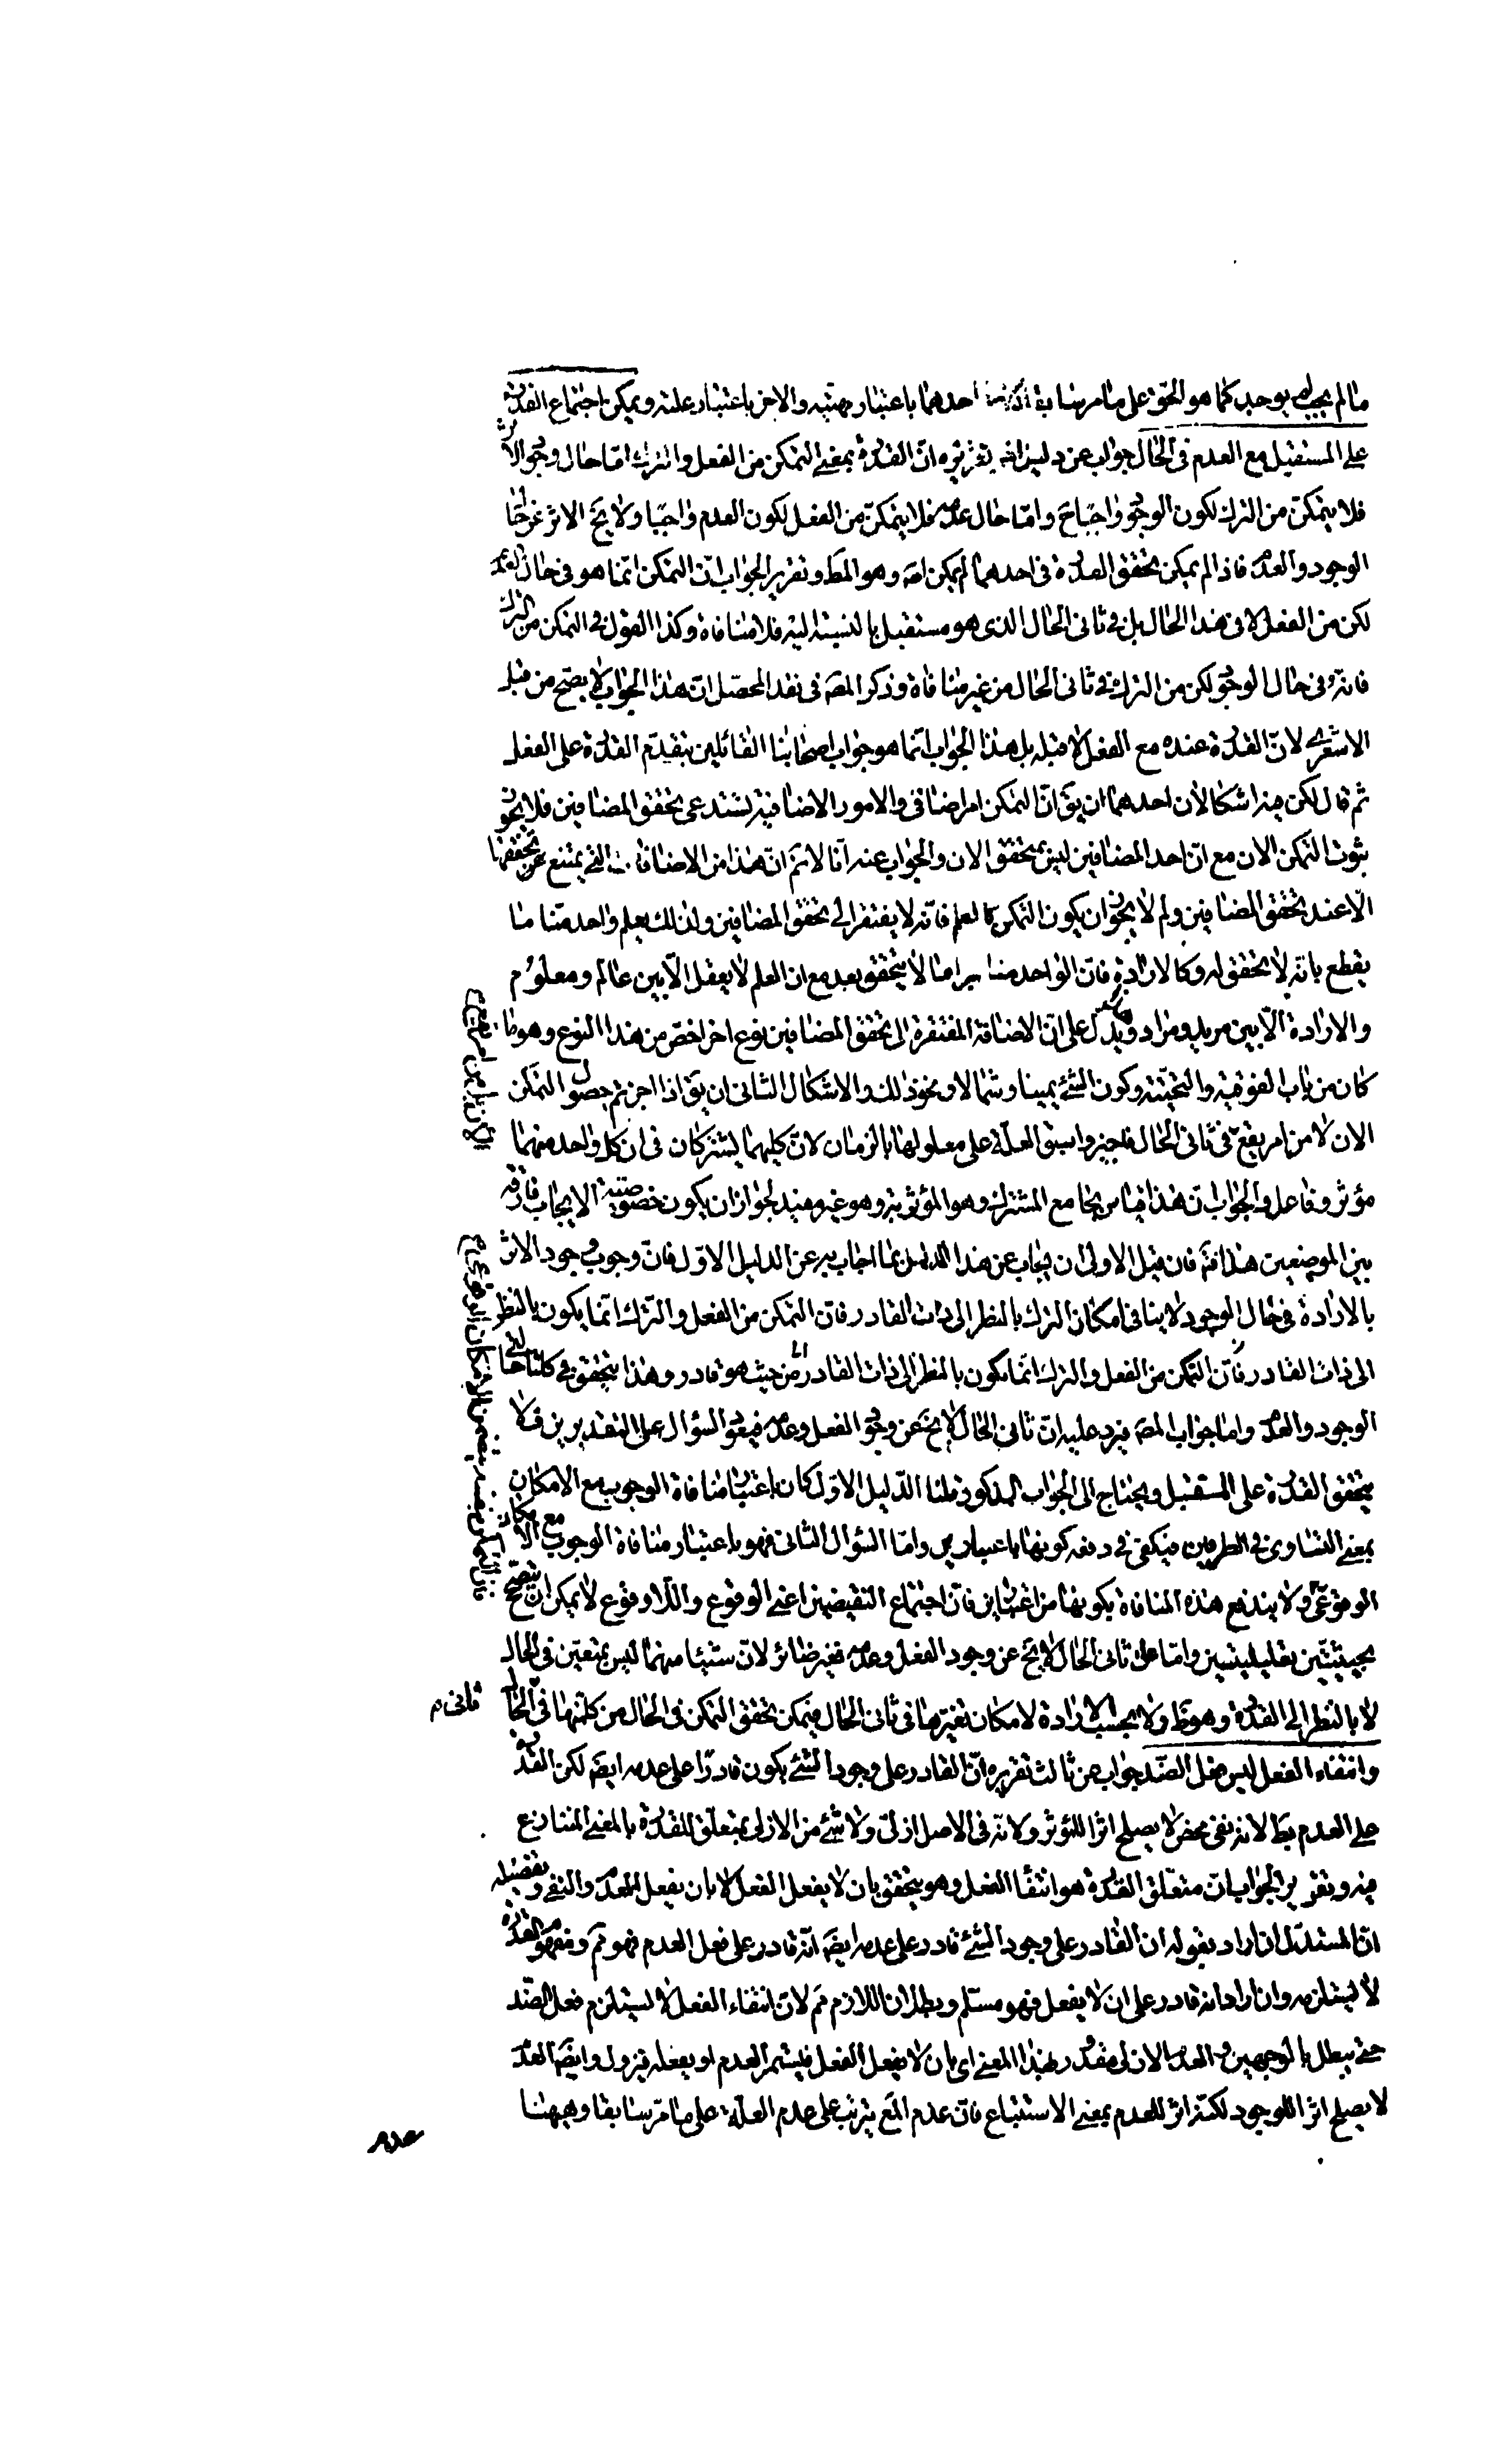 ما لم يجب لم يوجد كما هو الحق على ما مر سابقا احدهما باعتبار مهيته والاخر باعتبار علته ويمكن اجتماع القدرة
على المستقبل مع العدم فى الحال جواب عن دليل اخر تقريره ان القدرة بمعنى التمكن من الفعل والترك اما حال وجود الاثر
فلا يتمكن من الترك لكون الوجود واجبا ح واما حال عدمه فلا يتمكن من الفعل لكون العدم واجبا ولا يخ الاثر عن حالتى
الوجود والعدم فاذا لم يمكن تحقق القدرة فى احدهما لم يمكن اصلا وهو المط وتقرير الجواب ان التمكن انما هو فى حال العدم
لكن من الفعل لا فى هذا الحال بل فى ثانى الحال الذى هو مستقبل بالنسبة اليه فلا منافاة وكذا القول فى التمكن من الترك
فانه فى حال الوجود لكن من الترك فى ثانى الحال من غير منافاة وذكر المص فى نقد المحصل ان هذا الجواب لا يصح من قبل
الاشعرى لان القدرة عنده مع الفعل لا قبله بل هذا الجواب انما هو جواب اصحابنا القائلين بتقدم القدرة على الفعل
ثم قال لكن فيه اشكالان احدهما ان يق ان التمكن امر اضافى والامور الاضافية تستدعى تحقق المضافين فلا يجوز
ثبوت التمكن الان مع ان احد المضافين ليس بمتحقق الان والجواب عنه انا لا نم ان هذا من الاضافات التى يمتنع تحققها
الا عند تحقق المضافين ولم لا يجوز ان يكون التمكن كالعلم فانه لا يفتقر الى تحقق المضافين ولذلك يعلم واحد منا ما
يقطع بانه لا تحقق له وكالارادة فان الواحد منا يريد ما لا يتحقق بعد مع ان العلم لا يعقل الا بين عالم ومعلوم
والارادة الا بين مريد ومراد ويدل على ان الاضافة المفتقرة الى تحقق المضافين نوع اخر اخص من هذا النوع وهو ما
كان من باب الفوقية والتحتية وكون الشئ يمينا وشمالا ونحو ذلك والاشكال الثانى ان يق اذا اجزتم حصول التمكن
الان لا من امر يقع فى ثانى الحال فاجيزوا سبق العلة على معلولها بالزمان لان كليهما يشتركان فى ان كل واحد منهما
مؤثر وفاعل والجواب ان هذا قياس بجامع المشترك وهو المؤثرية وهو غير مفيد لجواز ان يكون خصوصية الايجاب فارقة
بين الموضعين هذا فتم فان قيل الاولى ان يجاب عن هذا الدليل بما اجاب به عن الدليل الاول فان وجوب وجود الاثر
بالارادة فى حال الوجود لا ينافى امكان الترك بالنظر الى ذات القادر فان التمكن من الفعل والترك انما يكون بالنظر
الى ذات القادر فان التمكن من الفعل والترك انما يكون بالنظر الى ذات القادر من حيث هو قادر وهذا يتحقق فى كلتا حالتى
الوجود والعدم واما جواب المص فيرد عليه ان ثانى الحال لا يخ عن وجود الفعل وعدمه فيعود السؤال على التقديرين فلا
يتحقق القدرة على المستقبل ويحتاج الى الجواب المذكور قلنا الدليل الاول كان باعتبار منافاة الوجوب مع الامكان
بمعنى التساوى فى الطرفين فيكفى فى دفعه كونها باعتبارين واما السؤال الثانى فهو باعتبار منافاة الوجوب مع الامكان
الوقوعى ولا يندفع هذه المنافاة بكونها من اعتبارين فان اجتماع النقيضين اعنى الوقوع واللاوقوع لا يمكن ان يصح
بحيثيتين تعليليتين واما ان ثانى الحال لا يخ عن وجود الفعل وعدمه فغير ضائر لان شيئا منهما ليس بمتعين فى الحال
لا بالنظر الى القدرة وهو ظ ولا بحسب الارادة لامكان تغيرها فى ثانى الحال فيمكن تحقق التمكن فى الحال من كلتيهما فى الحال
ثانى م
وانتفاء الفعل ليس فعل الضد جواب عن ثالث تقريره ان القادر على وجود الشئ يكون قادرا على عدمه ايضا لكن القدرة
على العدم بط لانه نفى محض لا يصلح اثرا للمؤثر ولانه فى الاصل ازلى ولا شئ من الازلى بمتعلق للقدرة بالمعنى المتنازع
فيه وتقرير الجواب ان متعلق القدرة هو انتفاء الفعل وهو يتحقق بان لا يفعل الفعل لا بان يفعل العدم والنفى وتفصيله
ان المستدل ان اراد بقوله ان القادر على وجود الشئ قادر على عدمه ايضا انه قادر على فعل العدم فهو مم ومفهوم القدرة
لا يستلزمه وان اراد انه قادر على ان لا يفعل فهو مسلم وبطلان اللازم مم لان انتفاء الفعل لا يستلزم فعل الضد
حتى يبطل بالوجهين والعدم الازلى مقدور بهذا المعنى اى بان لا يفعل الفعل فيستمر العدم او يفعله فيزول وايضا العدم
لا يصلح اثرا للوجود لكنه اثر للعدم بمعنى الاستتباع فان عدم المع يترتب على عدم العلة على ما مر سابقا وههنا
عدم